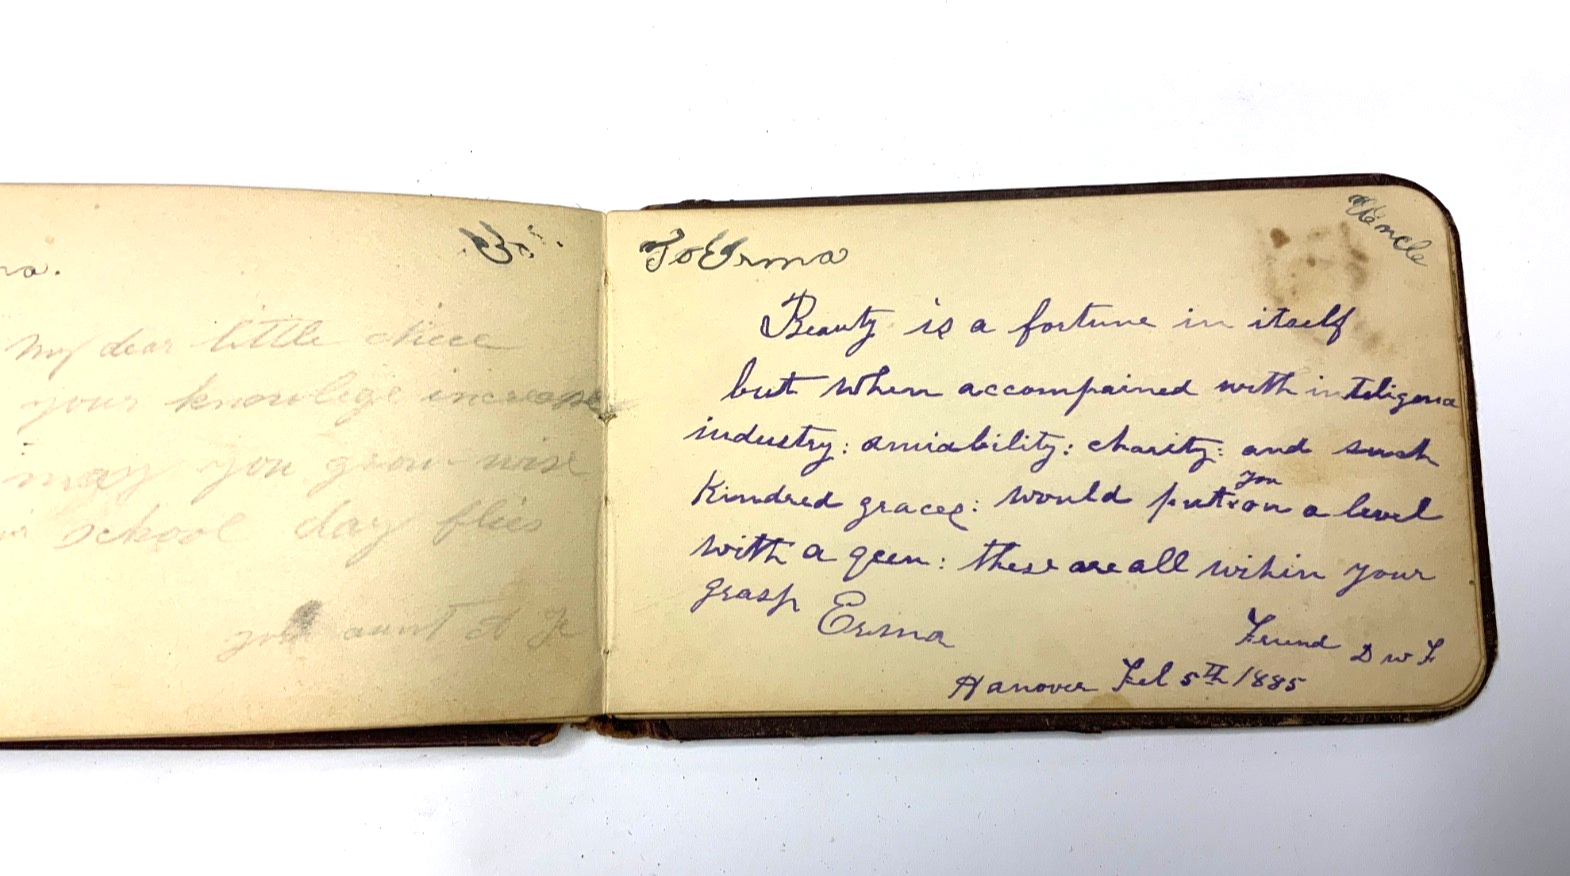 My dear little niece
your knowlege increase
may you grow wise
school day flies
your aunt
To Erma
Uncle
Beauty is a fortune in itself
but when accompained with inteligence
industry: amiability: charity: and such
Kindred graces: would put you on a level
with a qeen: these are all wihin your
grasp Erma
Friend D W F
Hanover Feb 5th 1885